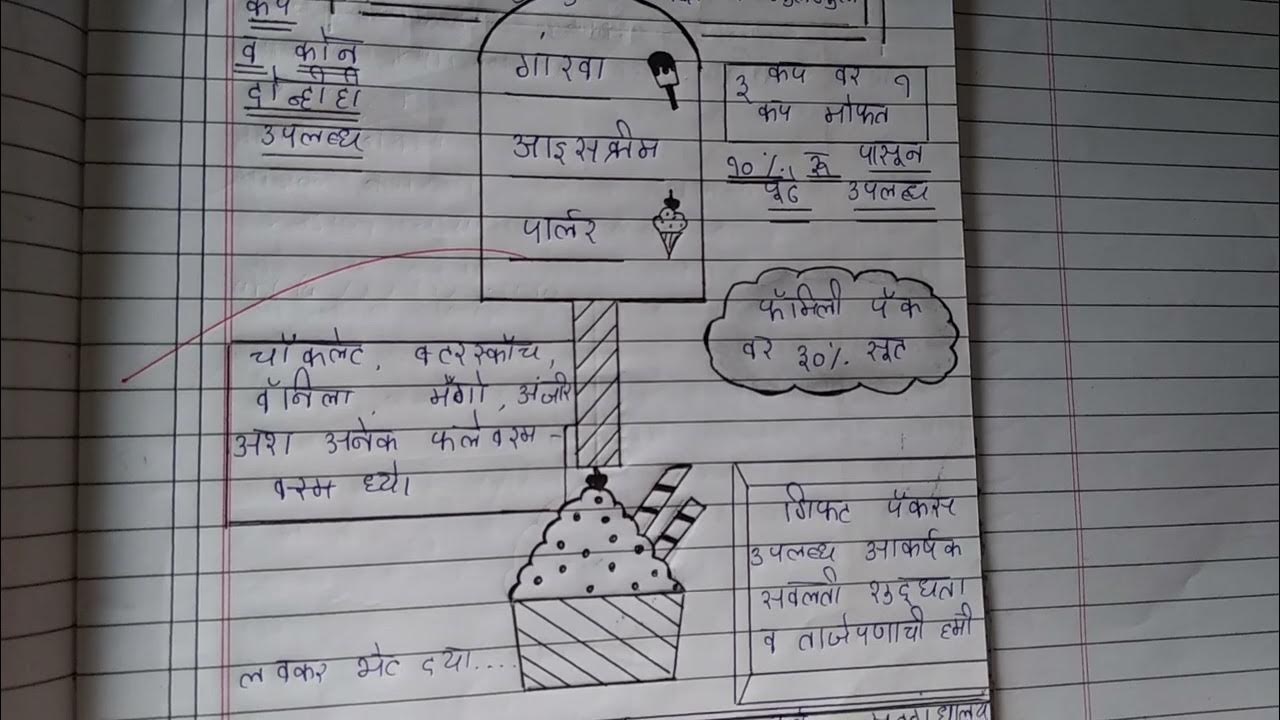 कप
व कोन
दोन्हीही
उपलब्ध
गारवा
आइसक्रीम
पार्लर
३ कप वर १
कप मोफत
१०% सूट पासून
पुढे उपलब्ध
फॅमिली पॅक
वर ३०% सूट
चॉकलेट, बटरस्कॉच,
वॅनिला, मँगो, अंजीर
अशा अनेक फ्लेवरस -
वरम घ्या
गिफ्ट पॅकस
उपलब्ध आकर्षक
सवलती शुद्धता
व ताजेपणाची हमी
लवकर भेट दया....